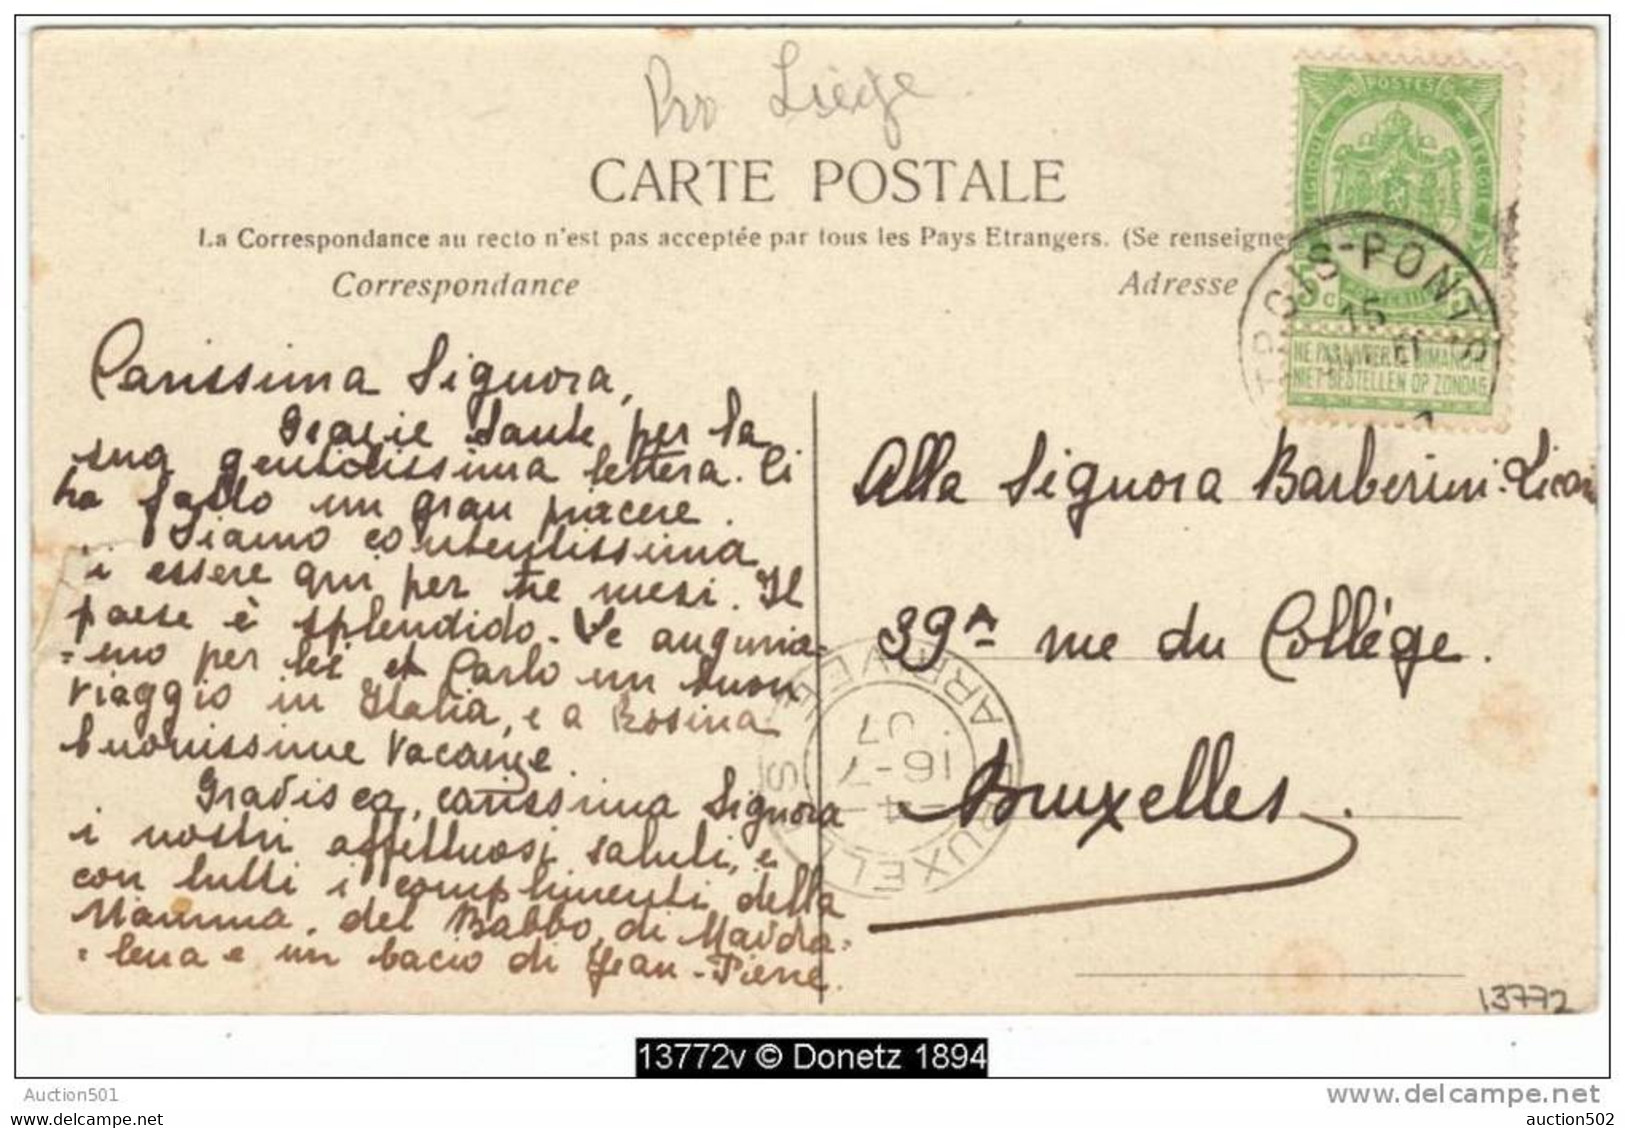 Prov Liège
CARTE POSTALE
La Correspondance au recto n'est pas acceptée par tous les Pays Etrangers. (Se renseigne
Correspondance
Adresse
POSTES
BELGIQUE
TROIS-PONTS
15
5 C
5
NE PAS LIVRER LE DIMANCHE
NIET BESTELLEN OP ZONDAG
Carissima Signora,
Grazie tante per la
sua gentilissima lettera. Ci
ha fatto un gran piacere.
Siamo contentissima
i essere qui per tre mesi. Il
paese è splendido. Le auguria-
-mo per lei et Carlo un buon
viaggio in Italia, e a Rosina
buonissime vacanze.
Gradisca, carissima Signora
i nostri affettuosi saluti, e
con tutti i complimenti della
Mamma, del Babbo, di Madda-
-lena e un bacio di Jean-Pierre.
Alla Signora Barberini-
39A rue du Collège.
Bruxelles.
BRUXELLES ARRIVEE
4
16-7
07
13772
13772v © Donetz 1894
Auction501
auction501
delcampe.net
auction502